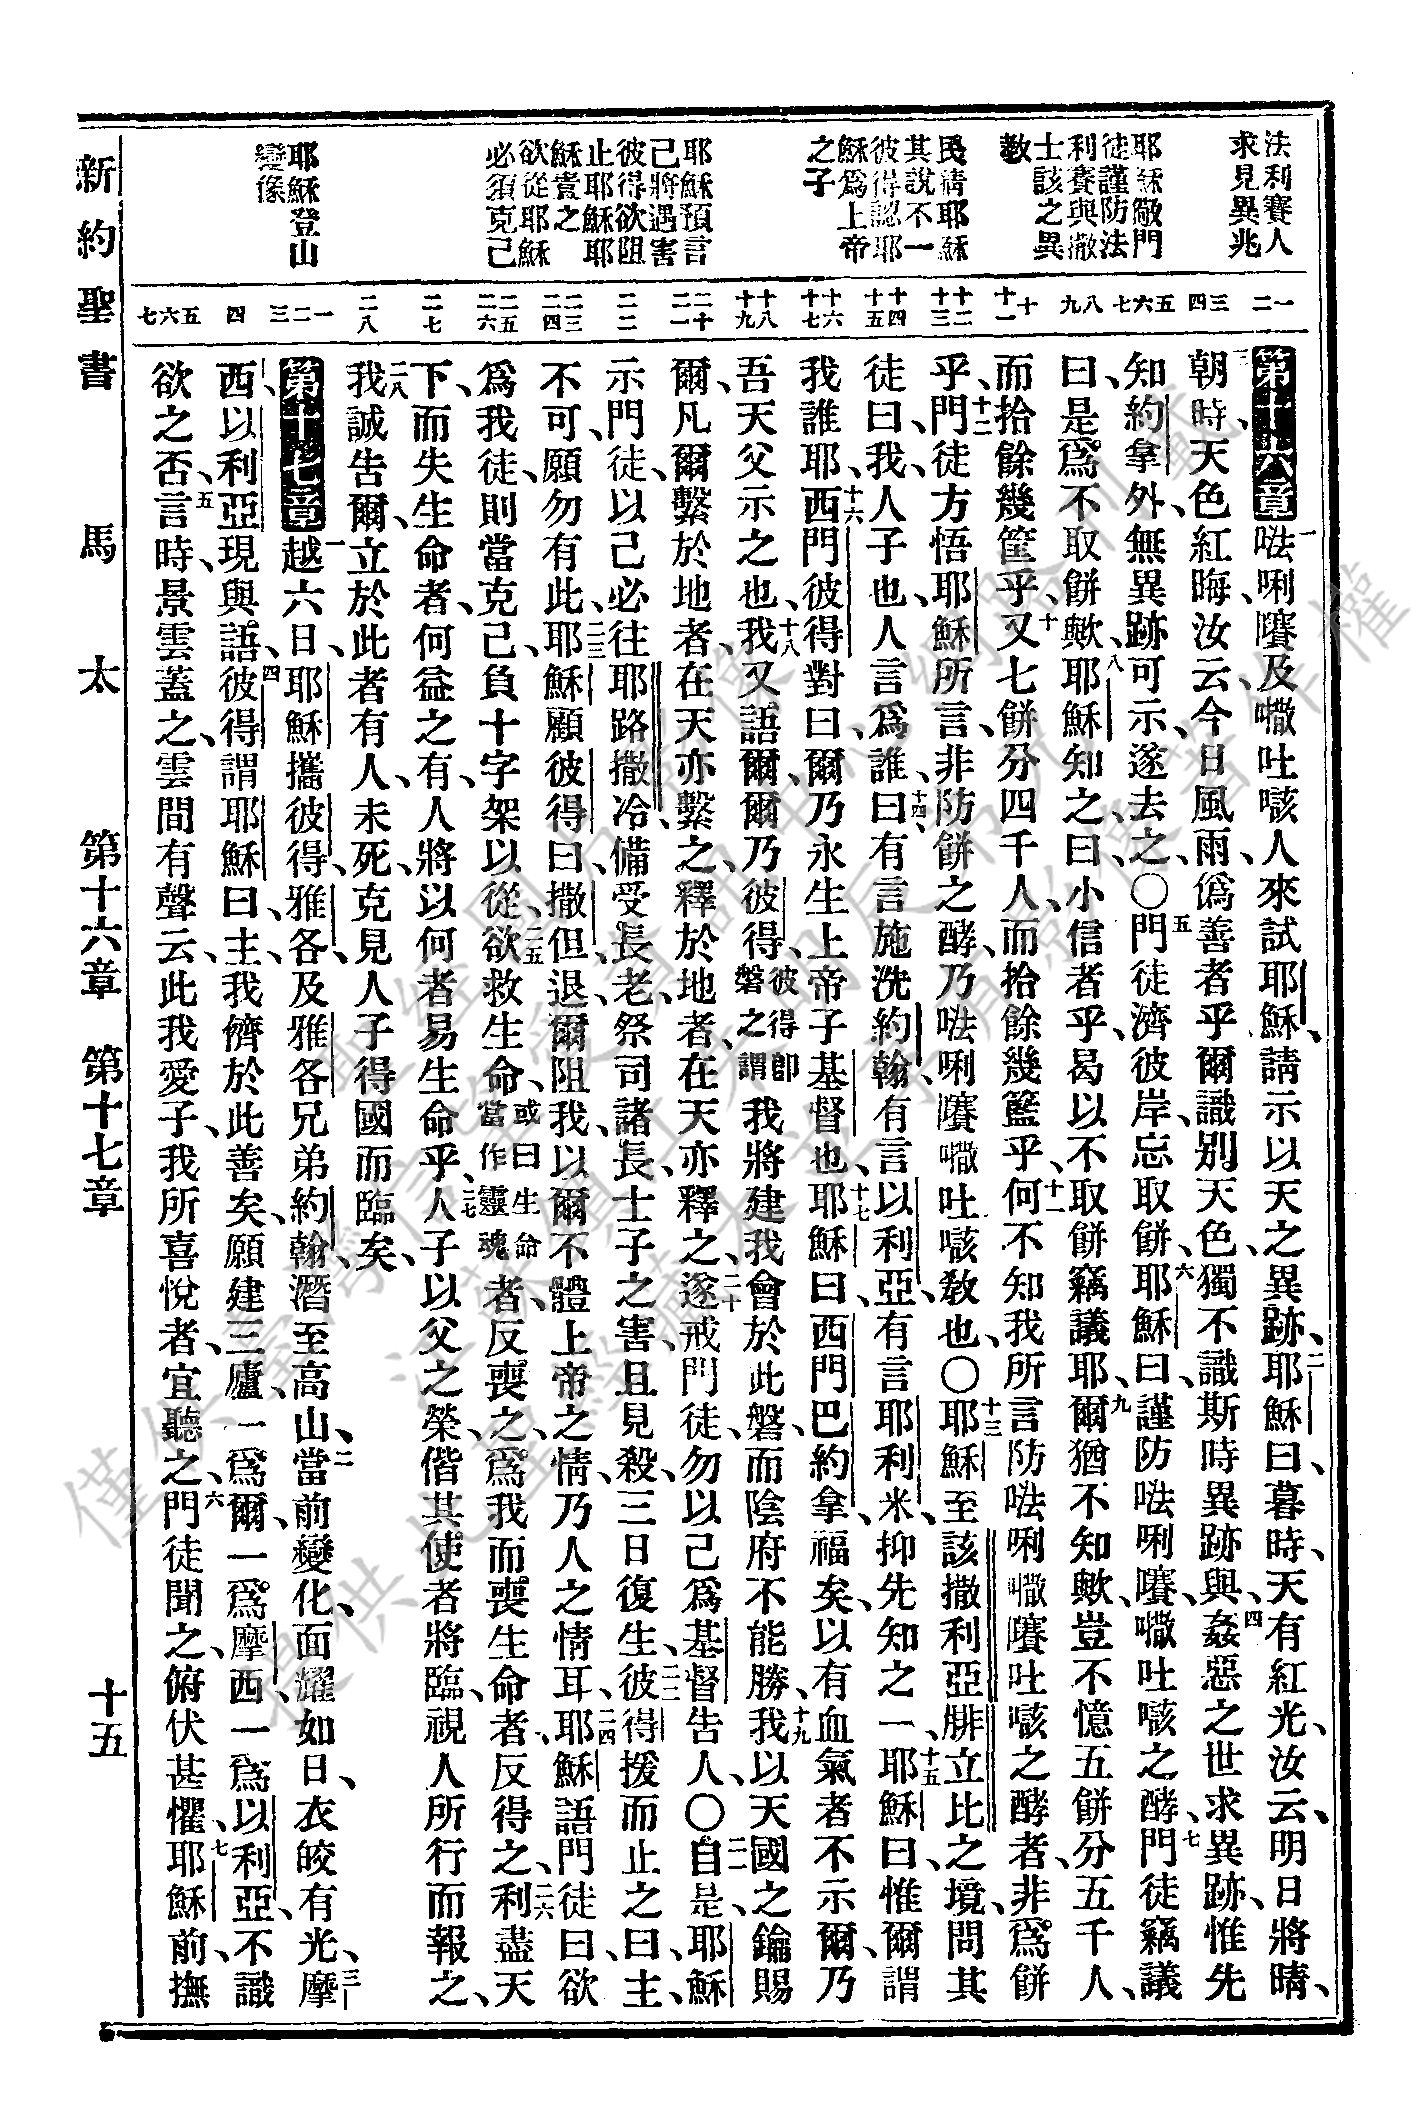 法利賽人
求見異兆
耶穌儆門
徒謹防法
利賽與撒
士該之異
教
民猜耶穌
其說不一
彼得認耶
穌爲上帝
之子
耶穌預言
己將遇害
彼得欲阻
止耶穌耶
穌責之
欲從耶穌
必須克己
耶穌登山
變像
一二
三四
五六七
八九
十十一
十二十三
十四十五
十六十七
十八十九
二十二一
二二
二三二四
二五二六
二七
二八
一二三
四
五六七
第十六章一㗲唎㘔及㘔吐㖡人來試耶穌、請示以天之異跡、二耶穌曰、暮時、天有紅光、汝云、明日將晴、
三朝時、天色紅晦、汝云、今日風雨、僞善者乎、爾識別天色、獨不識斯時異跡與、四姦惡之世求異跡、惟先
知約拿外、無異跡可示、遂去之、〇五門徒濟彼岸、忘取餅、六耶穌曰、謹防㗲唎㘔㘔吐㖡之酵、七門徒竊議
曰、是爲不取餅歟、八耶穌知之、曰、小信者乎、曷以不取餅竊議耶、九爾猶不知歟、豈不憶五餅分五千人、
而拾餘幾筐乎、十又七餅分四千人、而拾餘幾籃乎、十一何不知我所言防㗲唎㘔㘔吐㖡之酵者、非爲餅
乎、十二門徒方悟耶穌所言、非防餅之酵、乃㗲唎㘔㘔吐㖡教也、〇十三耶穌至該撒利亞腓立比之境、問其
徒曰、我人子也、人言爲誰、十四曰、有言施洗約翰、有言以利亞、有言耶利米、抑先知之一、十五耶穌曰、惟爾謂
我誰耶、十六西門彼得對曰、爾乃永生上帝子基督也、十七耶穌曰、西門巴約拿、福矣、以有血氣者不示爾、乃
吾天父示之也、十八我又語爾、爾乃彼得、彼得卽磐之謂我將建我會於此磐、而陰府不能勝、十九我以天國之鑰賜
爾、凡爾繫於地者、在天亦繫之、釋於地者、在天亦釋之、二十遂戒門徒、勿以己爲基督告人、〇二一自是、耶穌
示門徒、以己必往耶路撒冷、備受長老、祭司諸長、士子之害、且見殺、三日復生、二二彼得援而止之曰、主、
不可、願勿有此、二三耶穌顧彼得曰、撒但、退、爾阻我、以爾不體上帝之情、乃人之情耳、二四耶穌語門徒曰、欲
爲我徒、則當克己、負十字架以從、二五欲救生命、或曰生命當作靈魂者、反喪之、爲我而喪生命者、反得之、二六利盡天
下、而失生命者、何益之有、人將以何者易生命乎、二七人子以父之榮、偕其使者將臨、視人所行而報之、
二八我誠告爾、立於此者有人、未死、克見人子得國而臨矣、
第十七章一越六日、耶穌攜彼得、雅各、及雅各兄弟約翰、潛至高山、二當前變化、面耀如日、衣皎有光、三摩
西、以利亞現與語、四彼得謂耶穌曰、主、我儕於此善矣、願建三廬、一爲爾、一爲摩西、一爲以利亞、不識
欲之否、五言時、景雲蓋之、雲間有聲云、此我愛子、我所喜悅者、宜聽之、六門徒聞之、俯伏甚懼、七耶穌前、撫
新約聖書　馬太　第十六章　第十七章　十五